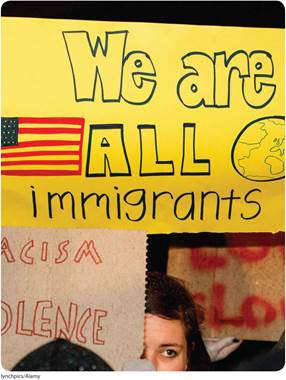 We are
ALL
immigrants
ACISM
OLENCE
lynchpics/Alamy